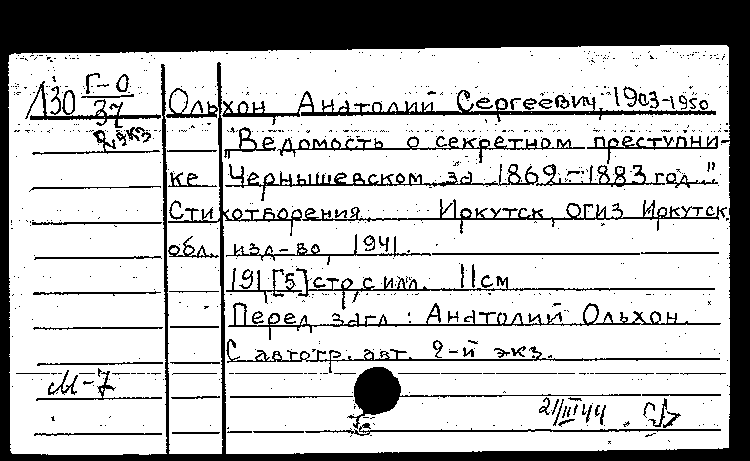 130 Г-О
37
2 экз
Ольхон, Анатолий Сергеевич, 1903-1950
"Ведомость о секретном преступни-
ке Чернышевском за 1862-1883 год."
Стихотворения. Иркутск, ОГИЗ Иркутск.
обл. изд-во, 1941.
191,[5] стр, с илл. 11 см
Перед загл.: Анатолий Ольхон.
С автогр. авт. 2-й экз.
М-7
21/III 44